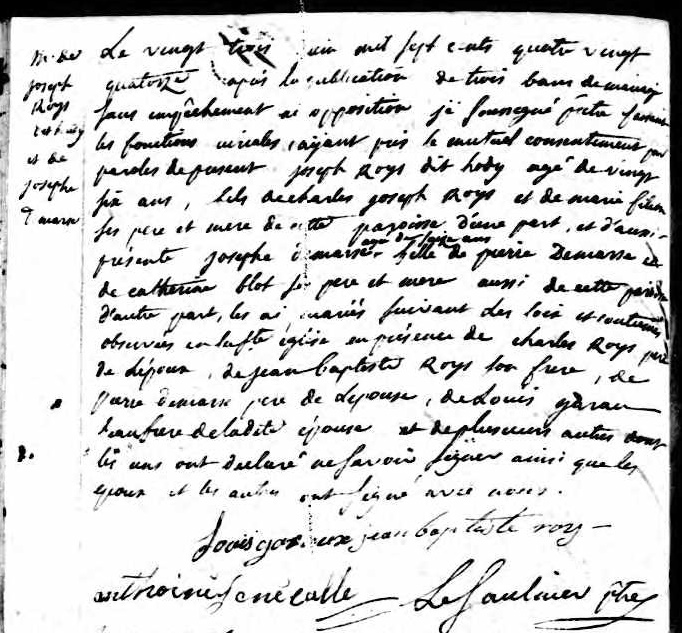 m. de
joseph
Roys
et de
josephe
Demarse
Le vingt trois juin mil sept cents quatre vingt
quatorze après la publication de trois bans de mariage
sans empêchement ni opposition je soussigné ptre faisant
les fonctions curiales, ayant pris le mutuel consentement par
paroles de present joseph Roys dit hody agé de vingt
six ans, fils de charles joseph Roys et de marie filion
ses pere et mere de cette paroisse d'une part, et d'aussi
présente josephe demarse agé de seize ans fille de pierre Demarse et
de catherine blot ses pere et mere aussi de cette paroisse
d'autre part, les ai mariés suivant des loix et coutumes
observées en la ste église en présence de charles Roys pere
de l'époux, de jean baptiste Roys son frere, de
pierre demarse pere de l'epouse, de Louis garau
beaufrere de ladite épouse et de plusieurs autres dont
les uns ont declaré ne savoir signer ainsi que les
epoux et les autres ont signé avec nous.
Louis jean baptiste roy
anthoine senécalle Le Saulnier ptre